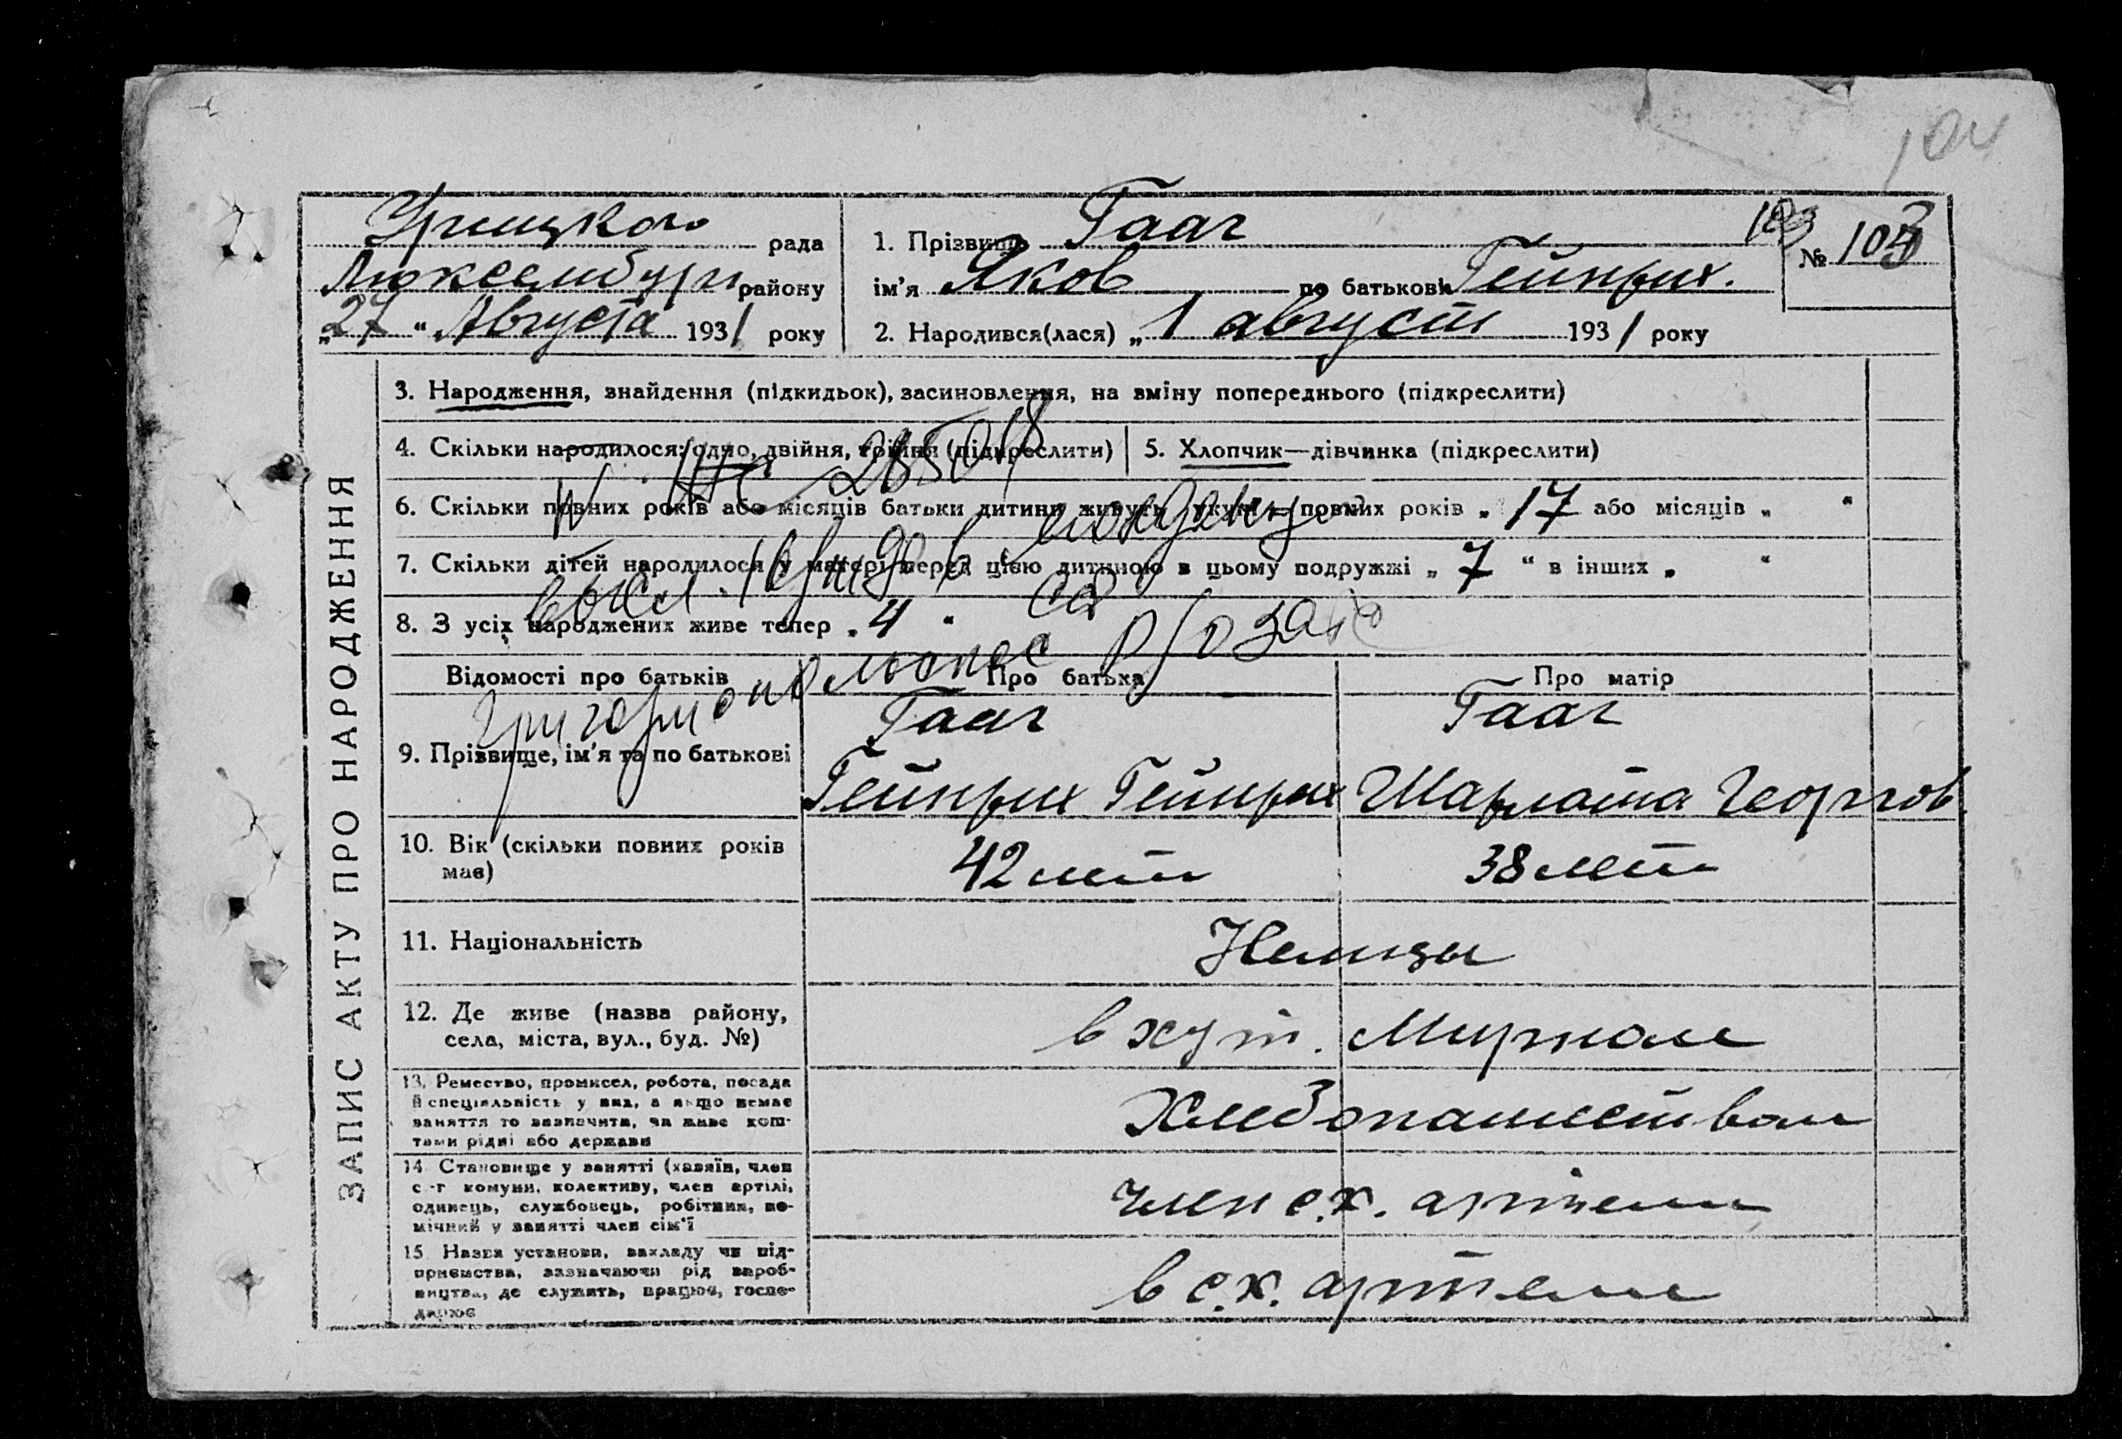 104
Урицкого рада
Люксембург. району
„27“ Августа 1931 року
1. Прізвище Гааг
ім'я Яков по батькові Гейнрих.
2. Народився(лася) „1 август 1931 року
103
№ 103
ЗАПИС АКТУ ПРО НАРОДЖЕННЯ
3. Народження, знайдення (підкидьок), засиновлення, на зміну попереднього (підкреслити)
4. Скільки народилося: одно, двійня, трійня (підкреслити)
5. Хлопчик—дівчинка (підкреслити)
6. Скільки повних років або місяців батьки дитини живуть укупі: повних років „17 або місяців „ “
7. Скільки дітей народилося у матері перед цією дитиною в цьому подружжі „7“ в інших „ “
8. З усіх народжених живе тепер „4“
Відомості про батьків Про батька Про матір
9. Прізвище, ім'я та по батькові
Гааг Гейнрих Гейнрих
Гааг Шарлота Георгов.
10. Вік (скільки повних років має)
42 лет 38 лет
11. Національність Немцы
12. Де живе (назва району, села, міста, вул., буд. №)
в хут. Мирном
13. Ремество, промисел, робота, посада й спеціяльність у них, а якщо немає заняття то зазначити, чи живе коштами рідні або держави
Хлебопашеством
14. Становище у занятті (хазяїн, член с.-г комуни, колективу, член артілі, одинець, службовець, робітник, помічний у занятті член сім'ї
член с.х. артели
15. Назва установи, закладу чи підприємства, зазначаючи рід виробництва, де служить, працює, господарює
в с.х. артели